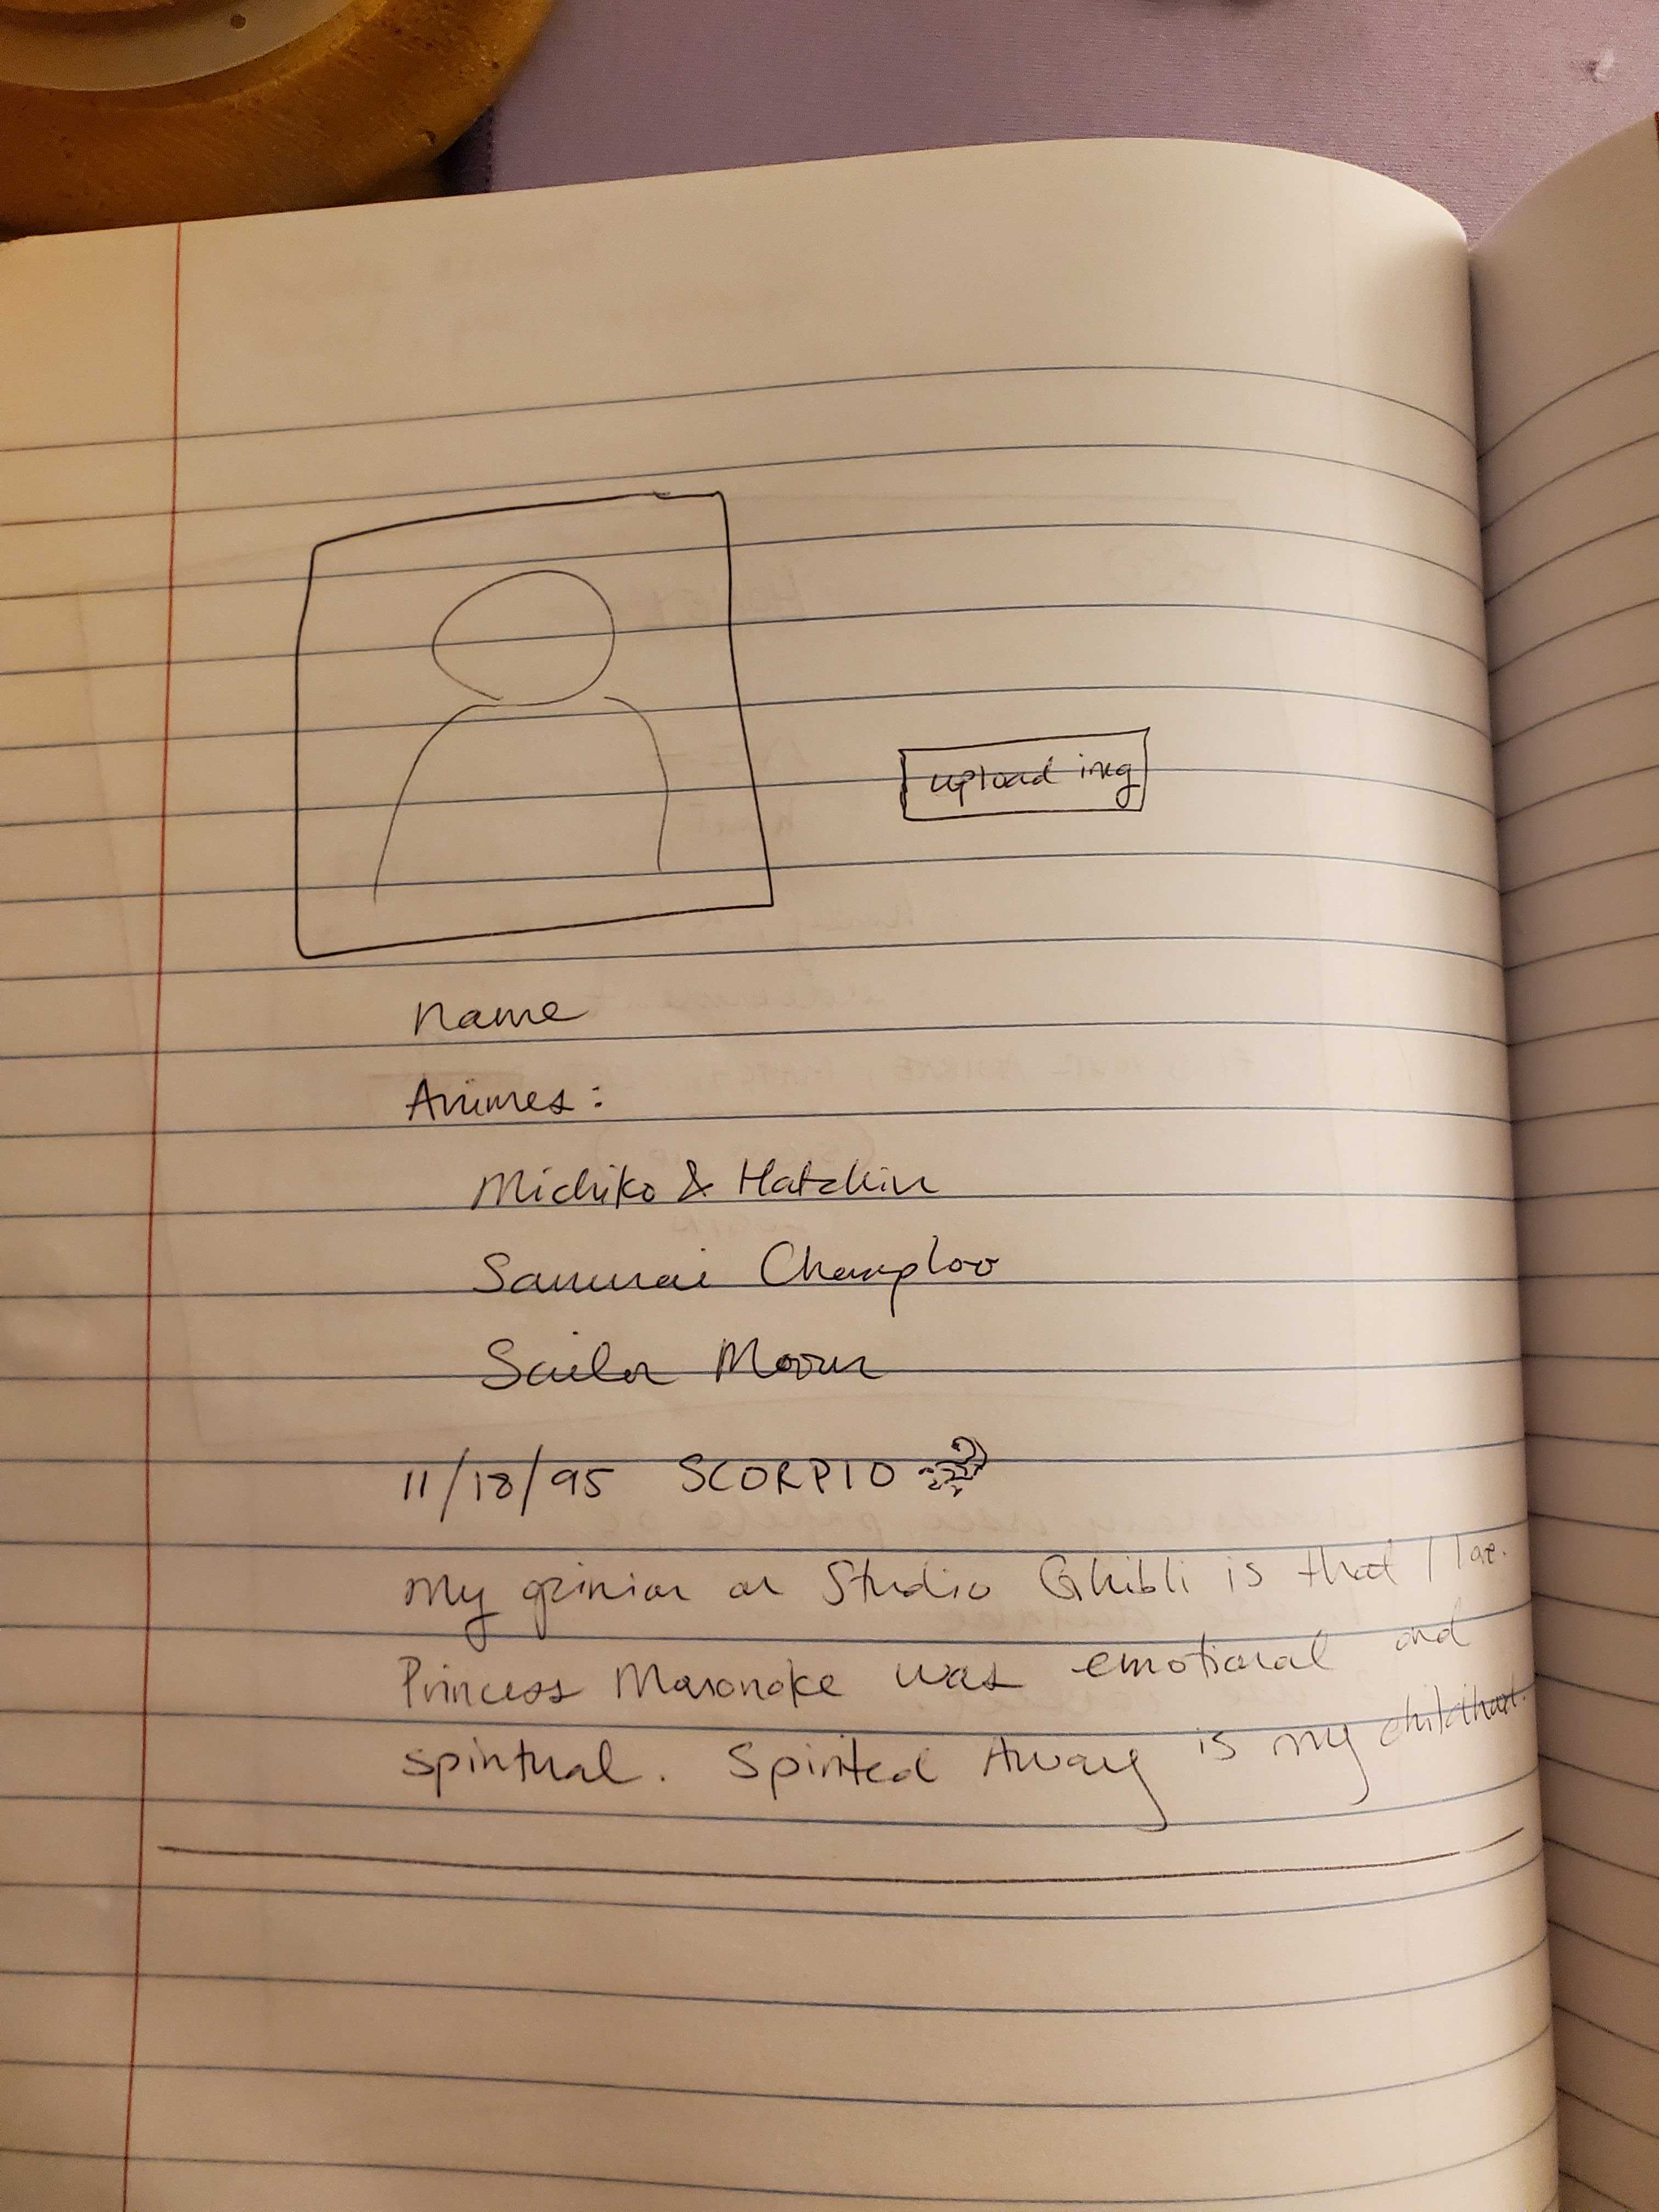 upload img
Name
Animes:
Michiko & Hatchin
Samurai Champloo
Sailor Moon
11/18/95 SCORPIO
My opinion on Studio Ghibli is that I love.
Princess Mononoke was emotional and
spiritual. Spirited Away is my childhood.